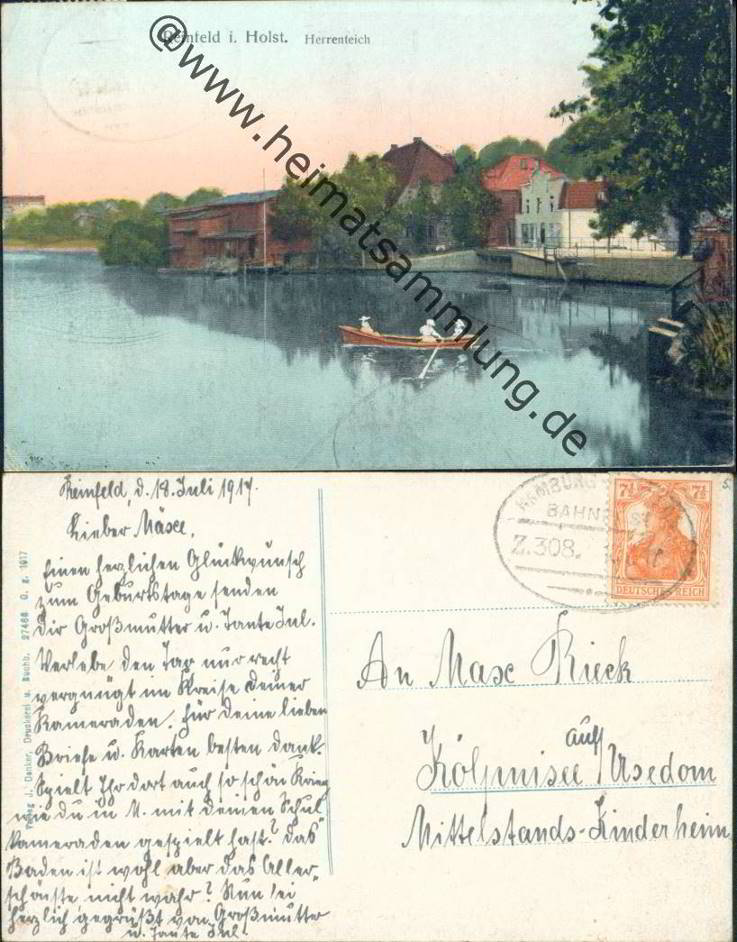 Reinfeld i. Holst. Herrenteich
@www.heimatsammlung.de
Reinfeld, d. 18. Juli 1917.
Lieber Mäxe,
Einen herzlichen Glückwunsch
zum Geburtstage senden
Dir Großmutter u. Tante Jul.
Verlebe den Tag nur recht
vergnügt im Kreise Deiner
Kameraden. Für Deine lieben
Briefe u. Karten besten Dank.
Spielt Ihr dort auch so schön Krieg
wie Du in A. mit Deinen Schul
kameraden gespielt hast? Das
Baden ist wohl aber das Aller-
schönste nicht wahr? Nun sei
herzlich gegrüßt von Großmutter
u. Tante Jul.
Verlag J. Danker, Druckerei u. Buchh. 27466 O. g. 1917
HAMBURG
BAHNPOST
Z.308.
7½ 7½
DEUTSCHES REICH
An Max Rieck
Kölpinsee auf Usedom
Mittelstands-Kinderheim